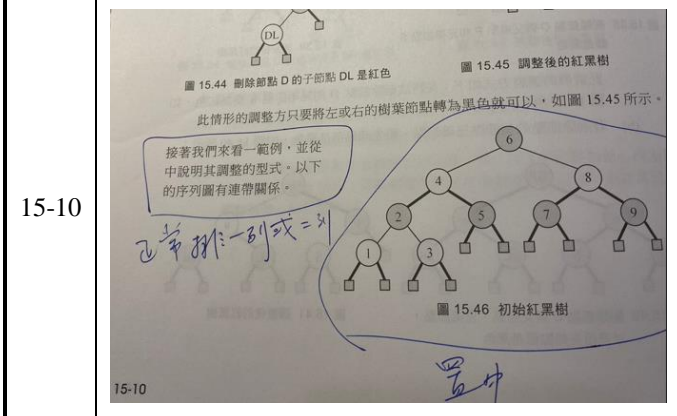 15-10
DL
圖 15.44 刪除節點 D 的子節點 DL 是紅色
圖 15.45 調整後的紅黑樹
此情形的調整方只要將左或右的樹葉節點轉為黑色就可以，如圖 15.45 所示。
接著我們來看一範例，並從
中說明其調整的型式。以下
的序列圖有連帶關係。
正常排一列或二列
6
4 8
2 5 7 9
1 3
圖 15.46 初始紅黑樹
置中
15-10